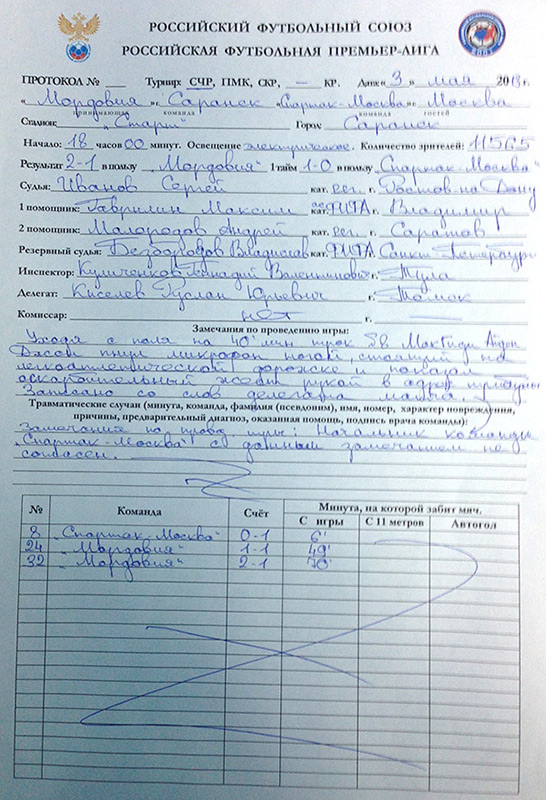 РОССИЙСКИЙ ФУТБОЛЬНЫЙ СОЮЗ
РОССИЙСКАЯ ФУТБОЛЬНАЯ ПРЕМЬЕР-ЛИГА
ПРОТОКОЛ № ___ Турнир: СЧР, ПМК, СКР, — КР. Дата: « 3 » мая 2013 г.
« Мордовия » г. Саранск « Спартак-Москва » г. Москва
принимающая команда команда гостей
Стадион: „Старт" Город: Саранск
Начало: 18 часов 00 минут. Освещение электрическое. Количество зрителей: 11565
Результат 2-1 в пользу „Мордовия" 1 тайм 1-0 в пользу „Спартак-Москва"
Судья: Иванов Сергей кат. г. Ростов-на-Дону
1 помощник: Гаврилин Максим кат. ФИФА г. Владимир
2 помощник: Малородов Андрей кат. г. Саратов
Резервный судья: Безбородов Владислав кат. ФИФА г. Санкт-Петербург
Инспектор: Куличенков Геннадий Валентинович г. Тула
Делегат: Киселев Руслан Юрьевич г. Томск
Комиссар: нет г. —
Замечания по проведению игры:
Уходя с поля на 40 мин игрок МакГиди Эйден
Джон пнул микрофон ногой, стоящий на
легкоатлетической дорожке и показал
оскорбительный жест рукой в адрес трибуны
Записано со слов делегата матча.
Травматические случаи (минута, команда, фамилия (псевдоним), имя, номер, характер повреждения,
причины, предварительный диагноз, оказанная помощь, подпись врача команды):
Замечания по пров. игры: Начальник команды
„Спартак-Москва" с данным замечанием не
согласен.
№ Команда Счёт Минута, на которой забит мяч.
С игры С 11 метров Автогол
8 „Спартак-Москва" 0-1 6'
24 „Мордовия" 1-1 49'
32 „Мордовия" 2-1 70'